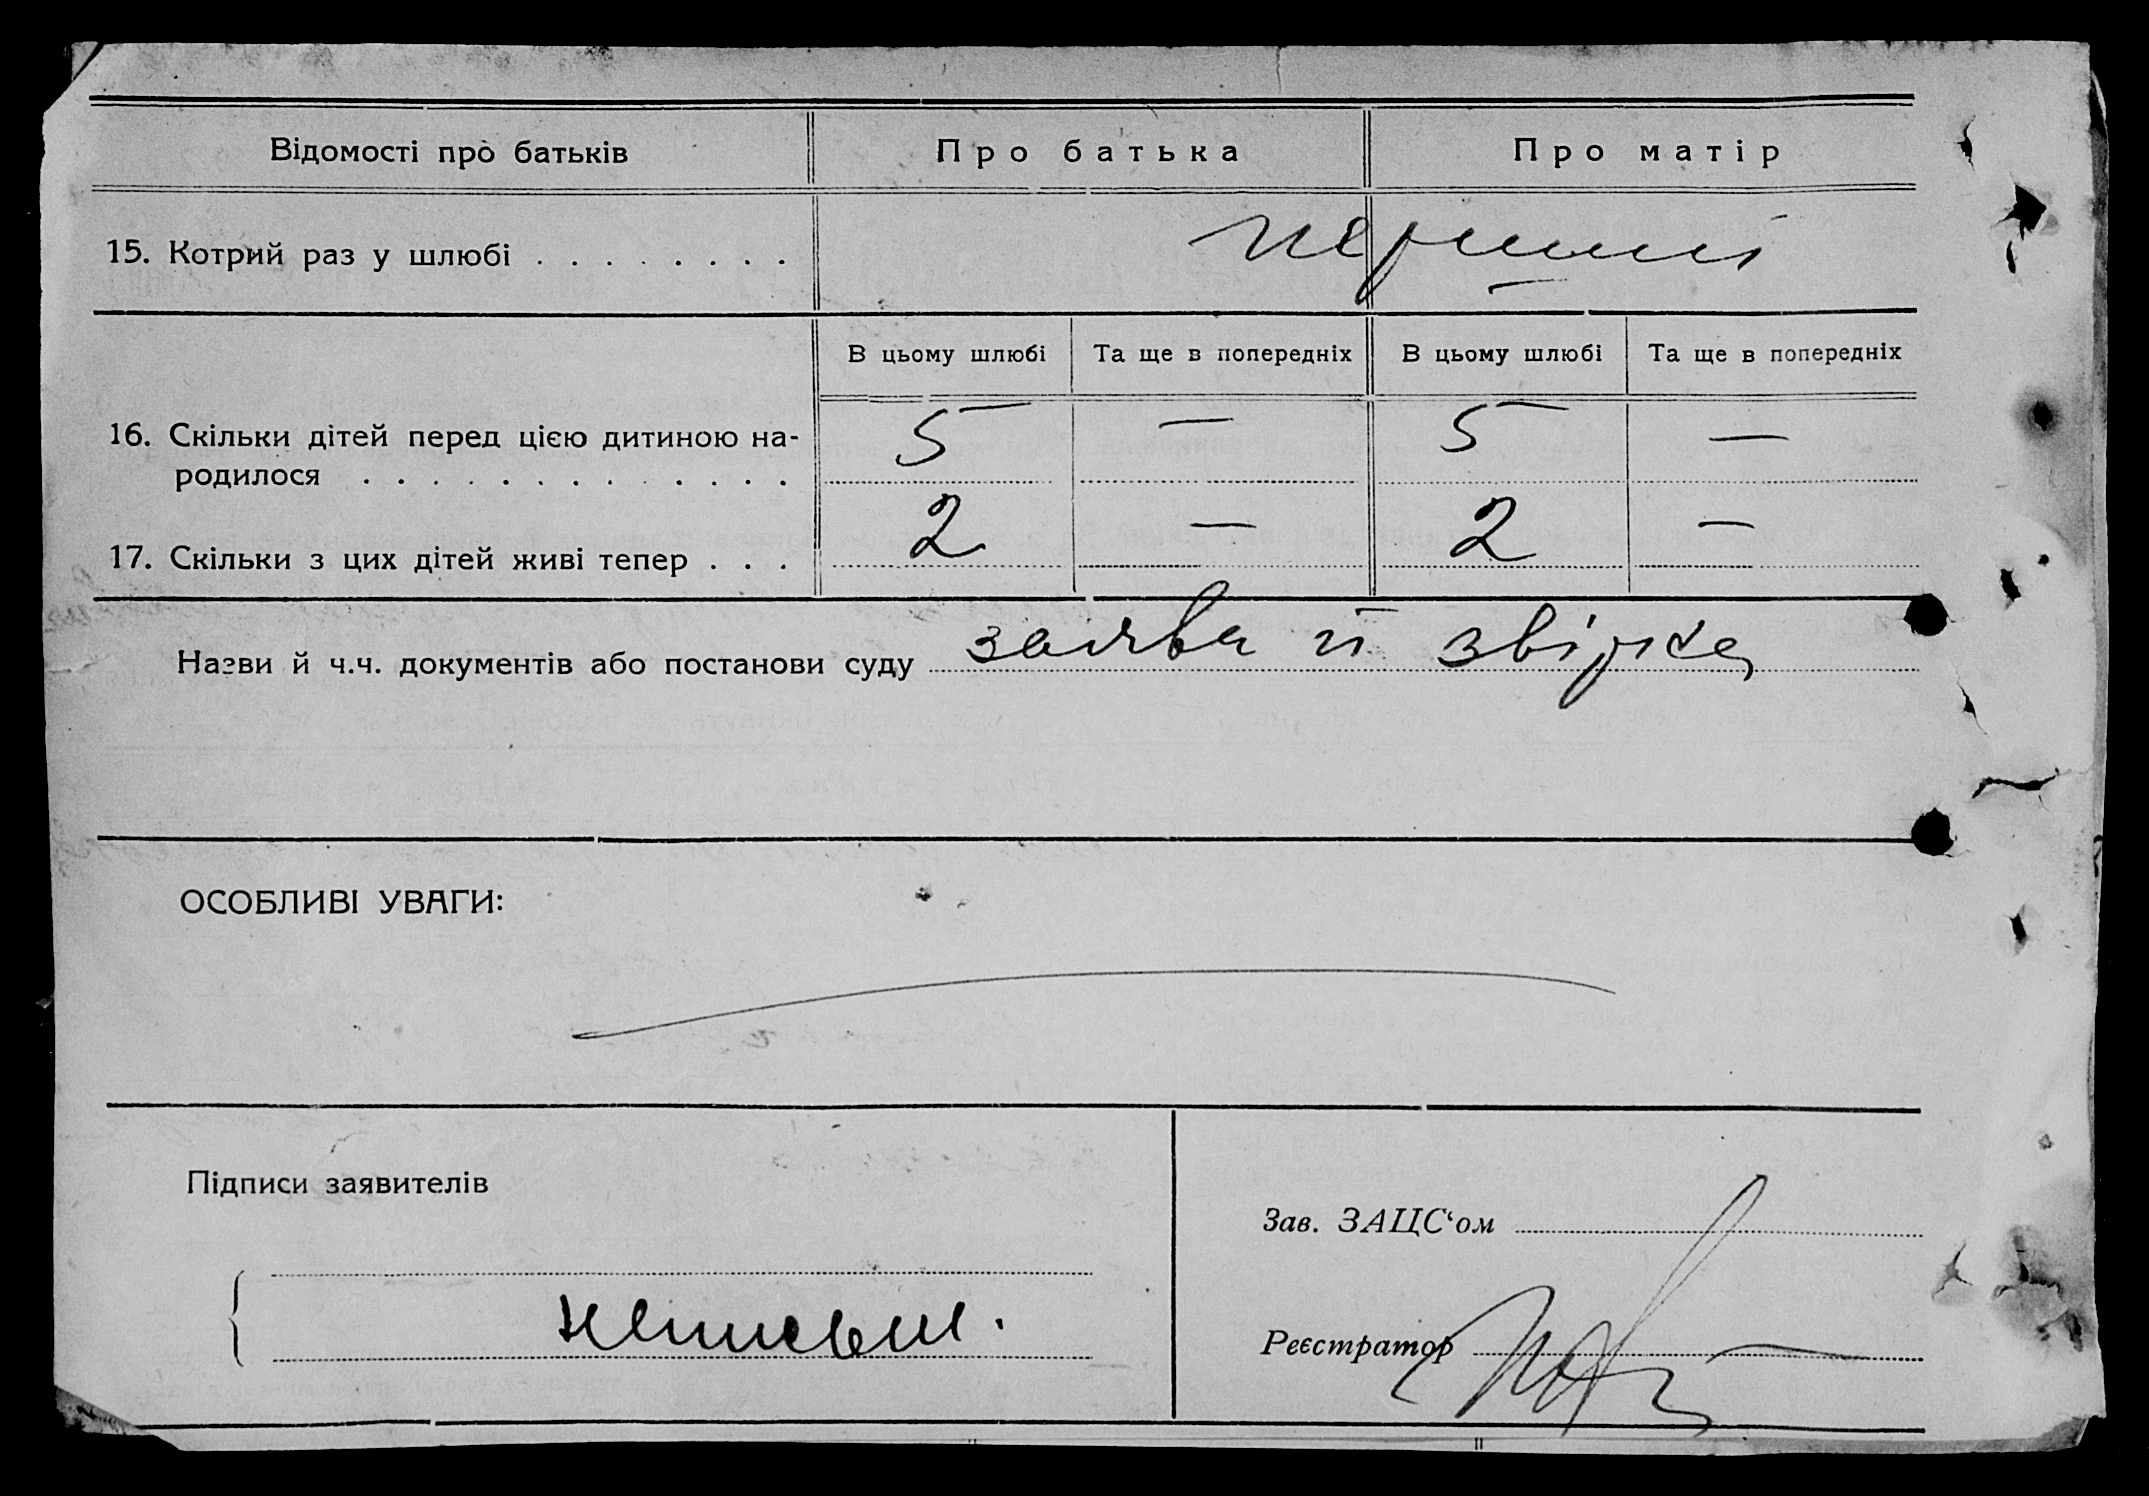 Відомості про батьків Про батька Про матір
15. Котрий раз у шлюбі . . . . . . . . перший
В цьому шлюбі Та ще в попередніх В цьому шлюбі Та ще в попередніх
16. Скільки дітей перед цією дитиною на-
родилося . . . . . . . . . . . . . 5 — 5 —
17. Скільки з цих дітей живі тепер . . . 2 — 2 —
Назви й ч.ч. документів або постанови суду заява й звірка
ОСОБЛИВІ УВАГИ:
Підписи заявителів
Зав. ЗАЦС‘ом
неписьм.
Реєстратор